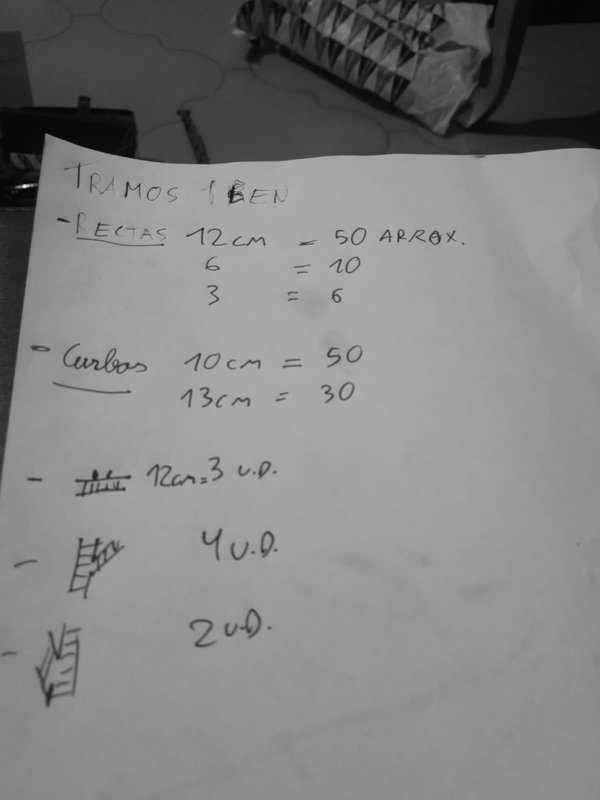 TRAMOS IBEN
- RECTAS 12cm = 50 ARROX.
6 = 10
3 = 6
- Curbas 10cm = 50
13cm = 30
- 12cm = 3 U.D.
- 4 U.D.
- 2 U.D.